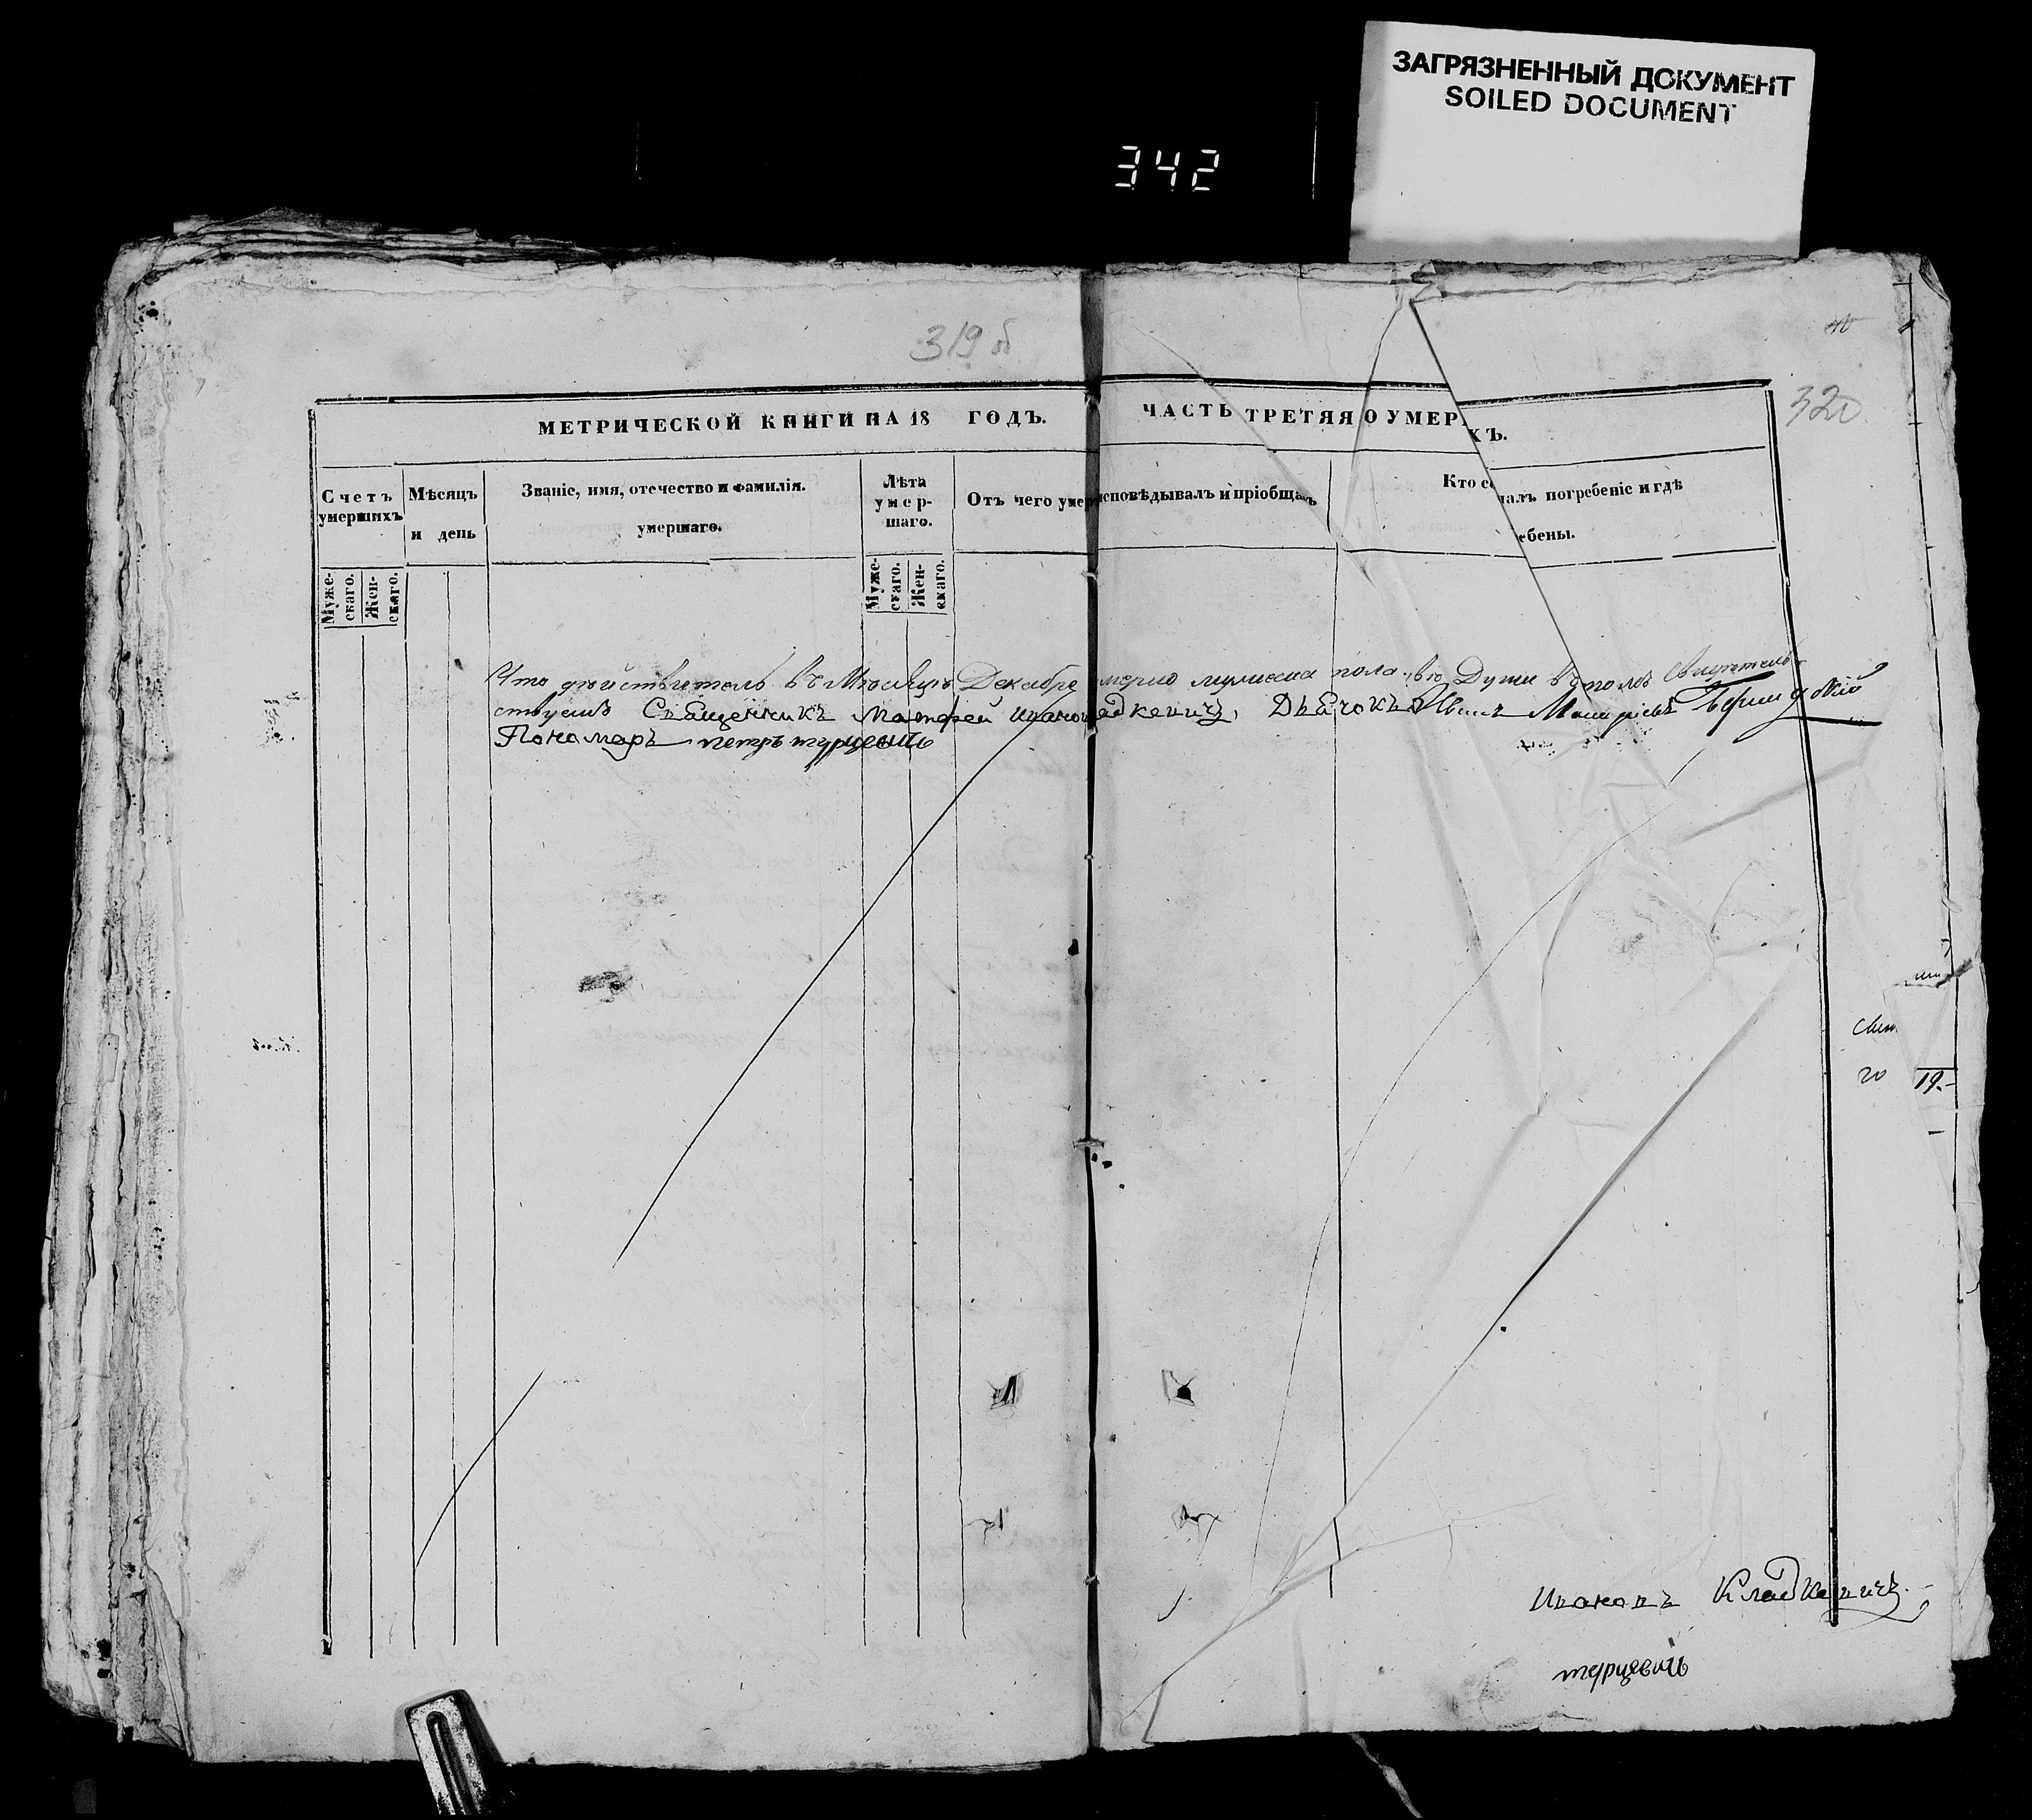 ЗАГРЯЗНЕННЫЙ ДОКУМЕНТ
SOILED DOCUMENT
342
319 б
320
МЕТРИЧЕСКОЙ КНИГИ НА 18 ГОДЪ. ЧАСТЬ ТРЕТЯЯ О УМЕР ХЪ.
Счетъ умершихъ
Мѣсяцъ и день
Званіе, имя, отечество и фамилія. умершаго.
Лѣта умер-шаго.
Отъ чего умер
исповѣдывалъ и пріобщалъ
Кто со
чалъ погребеніе и гдѣ
ебены.
Муже-скаго.
Жен-скаго.
Муже-скаго.
Жен-скаго.
Что дѣйствителъ въ Мѣсяцѣ Декабре пола Души въ томъ Свидѣтель
ствуемъ Священникъ Матфей Дьячокъ Иванъ
Пономаръ петръ турцевичь
20
19.-
Кладкевичъ.
турцевичь